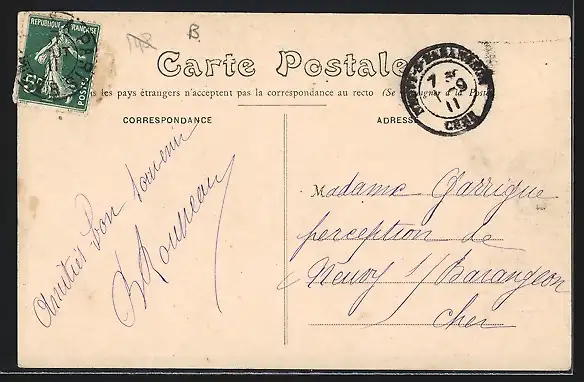 148 B.
REPUBLIQUE FRANÇAISE
POSTES
Carte Postale
les pays étrangers n'acceptent pas la correspondance au recto (Se
à la Poste
CORRESPONDANCE
ADRESSE
7
9
11
CHER
Amitiés Bon souvenir
Rousseau
Madame Garrigue
perception de
Neuvy s/ Barangeon
Cher